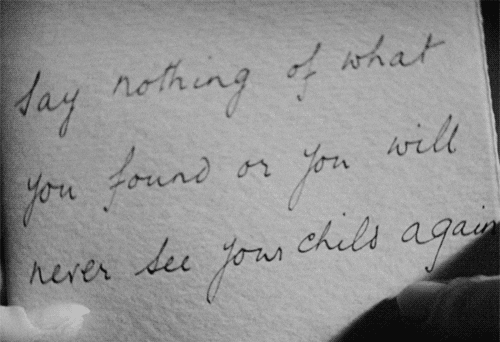 Say nothing of what
you found or you will
never see your child again